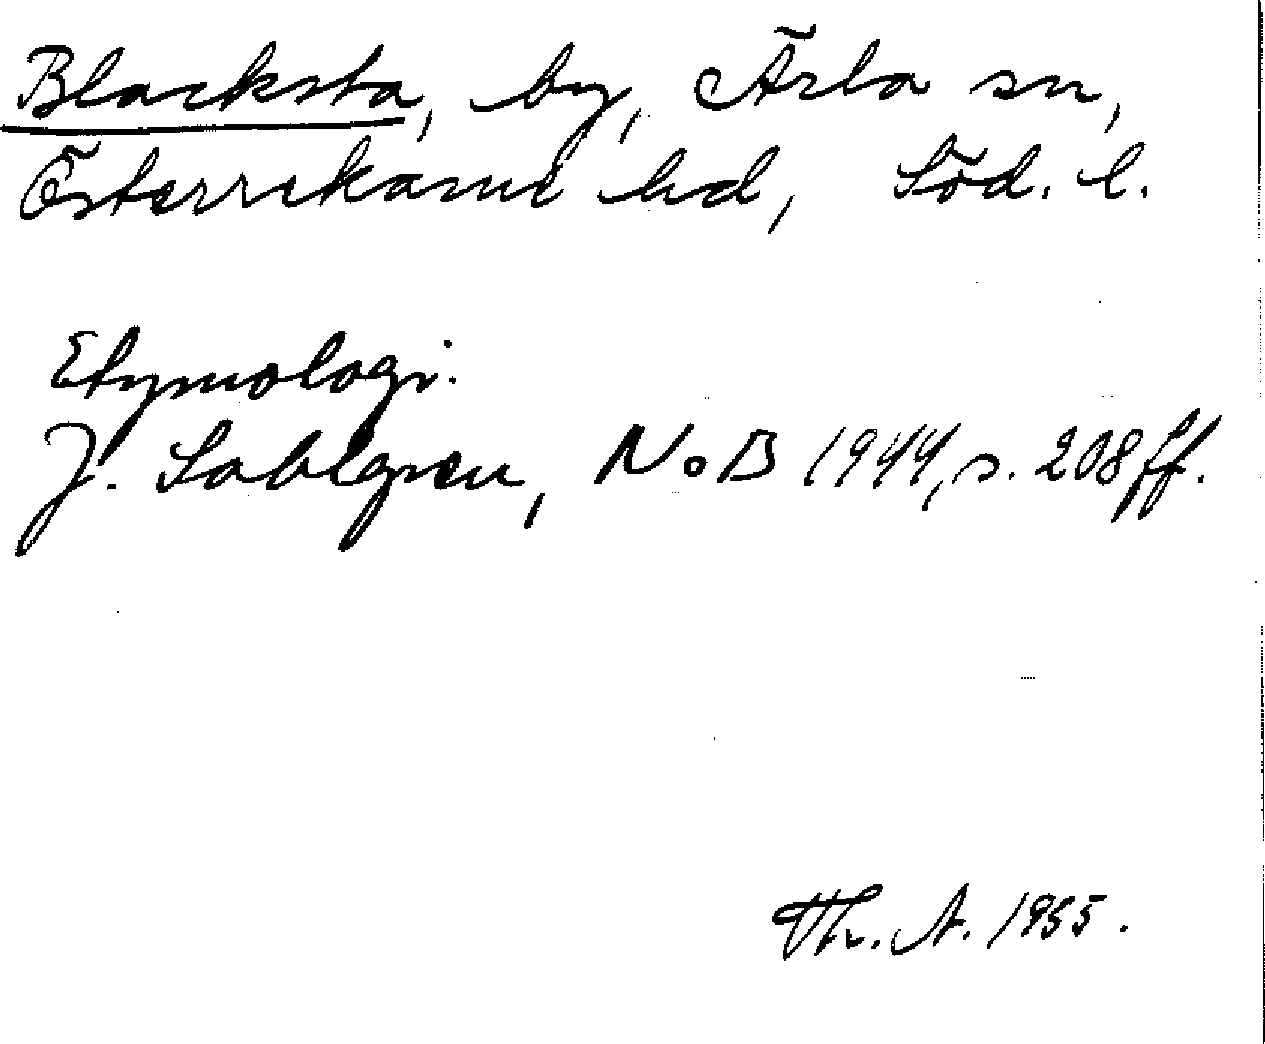 Blacksta, by, Ärla sn,
Österrekarne hd, Söd. l.
Etymologi.
J. Sahlgren, NoB 1944, s. 208 ff.
Th. A. 1955.